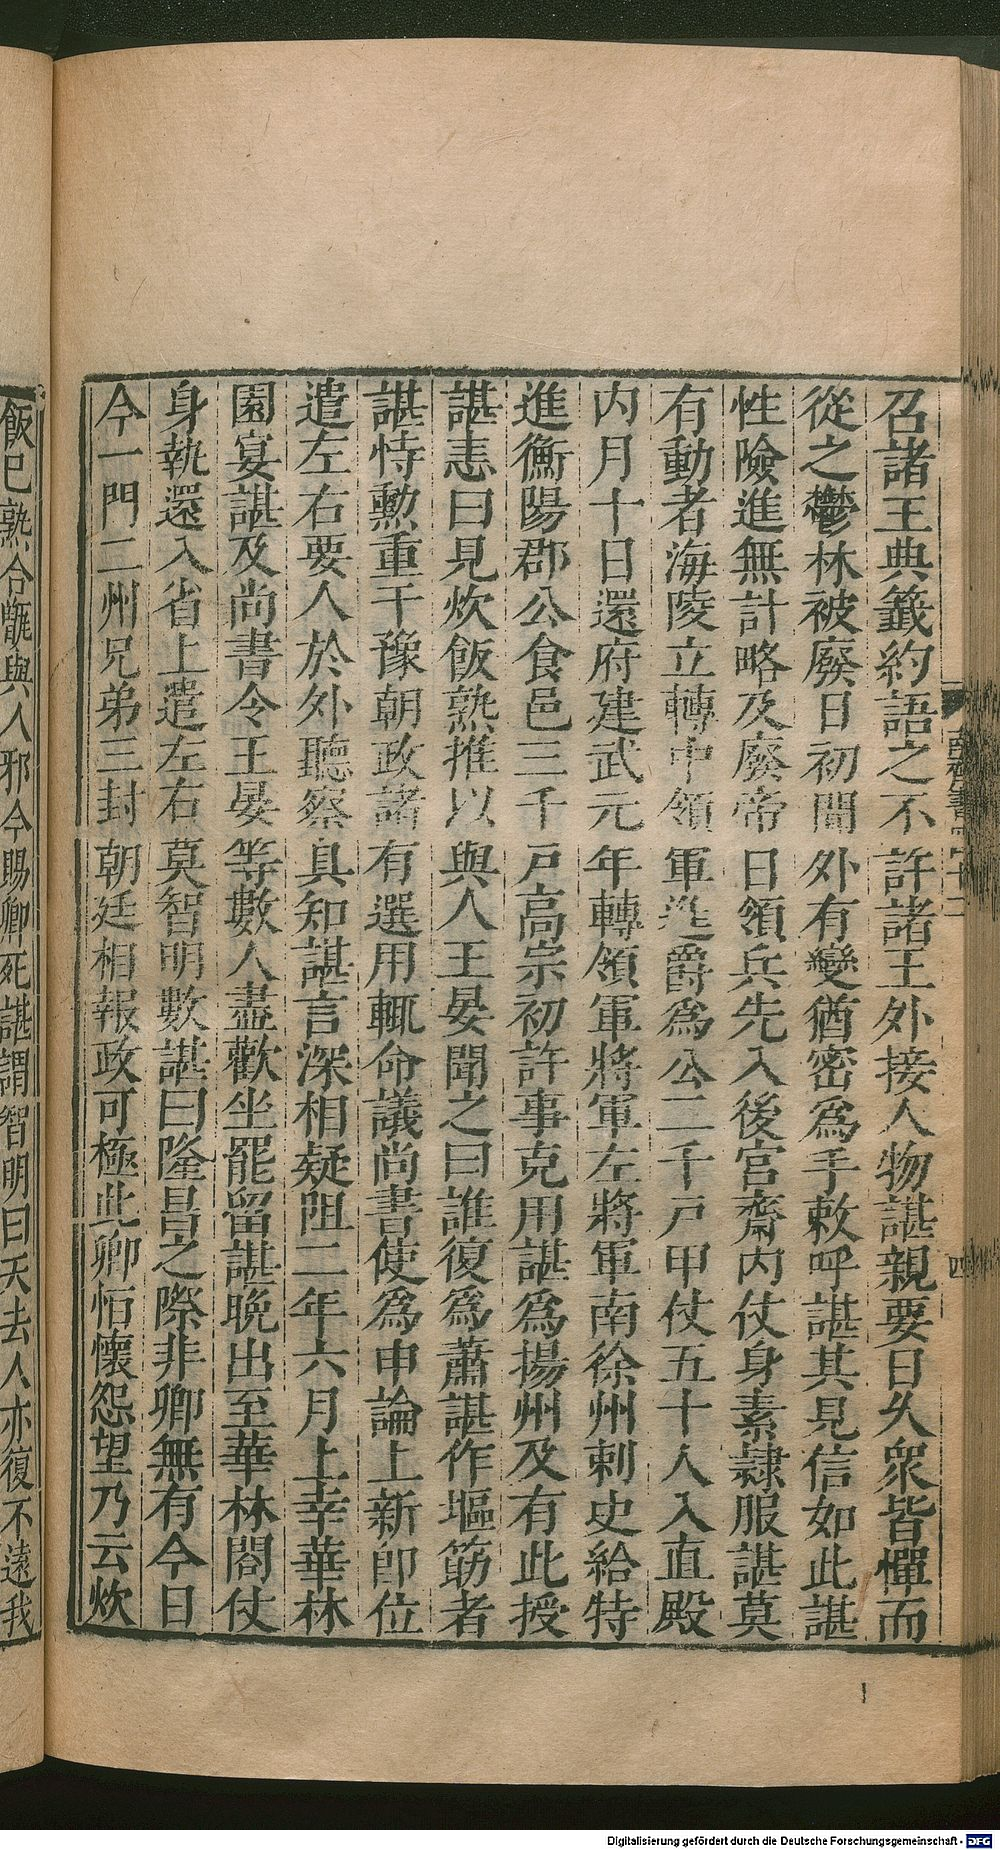 召諸王典籤約語之不許諸王外接人物諶親要日久衆皆憚而
從之鬱林被廢日初聞外有變猶密爲手敕呼諶其見信如此諶
性險進無計略及廢帝日領兵先入後宮齋內仗身素隸服諶莫
有動者海陵立轉中領軍進爵爲公二千戸甲仗五十人入直殿
內月十日還府建武元年轉領軍將軍左將軍南徐州刺史給特
進衡陽郡公食邑三千戸高宗初許事克用諶爲揚州及有此授
諶恚曰見炊飯熟推以與人王晏聞之曰誰復爲蕭諶作堰筯者
諶恃勲重干豫朝政諸有選用輒命議尚書使爲申論上新卽位
遣左右要人於外聽察具知諶言深相疑阻二年六月上幸華林
園宴諶及尚書令王晏等數人盡歡坐罷留諶晚出至華林閤仗
身執還入省上遣左右莫智明數諶曰隆昌之際非卿無有今日
今一門二州兄弟三封朝廷相報政可極此卿恒懷怨望乃云炊
飯已熟合甑與人邪今賜卿死諶謂智明曰天去人亦復不遠我
四
Digitalisierung gefördert durch die Deutsche Forschungsgemeinschaft - DFG